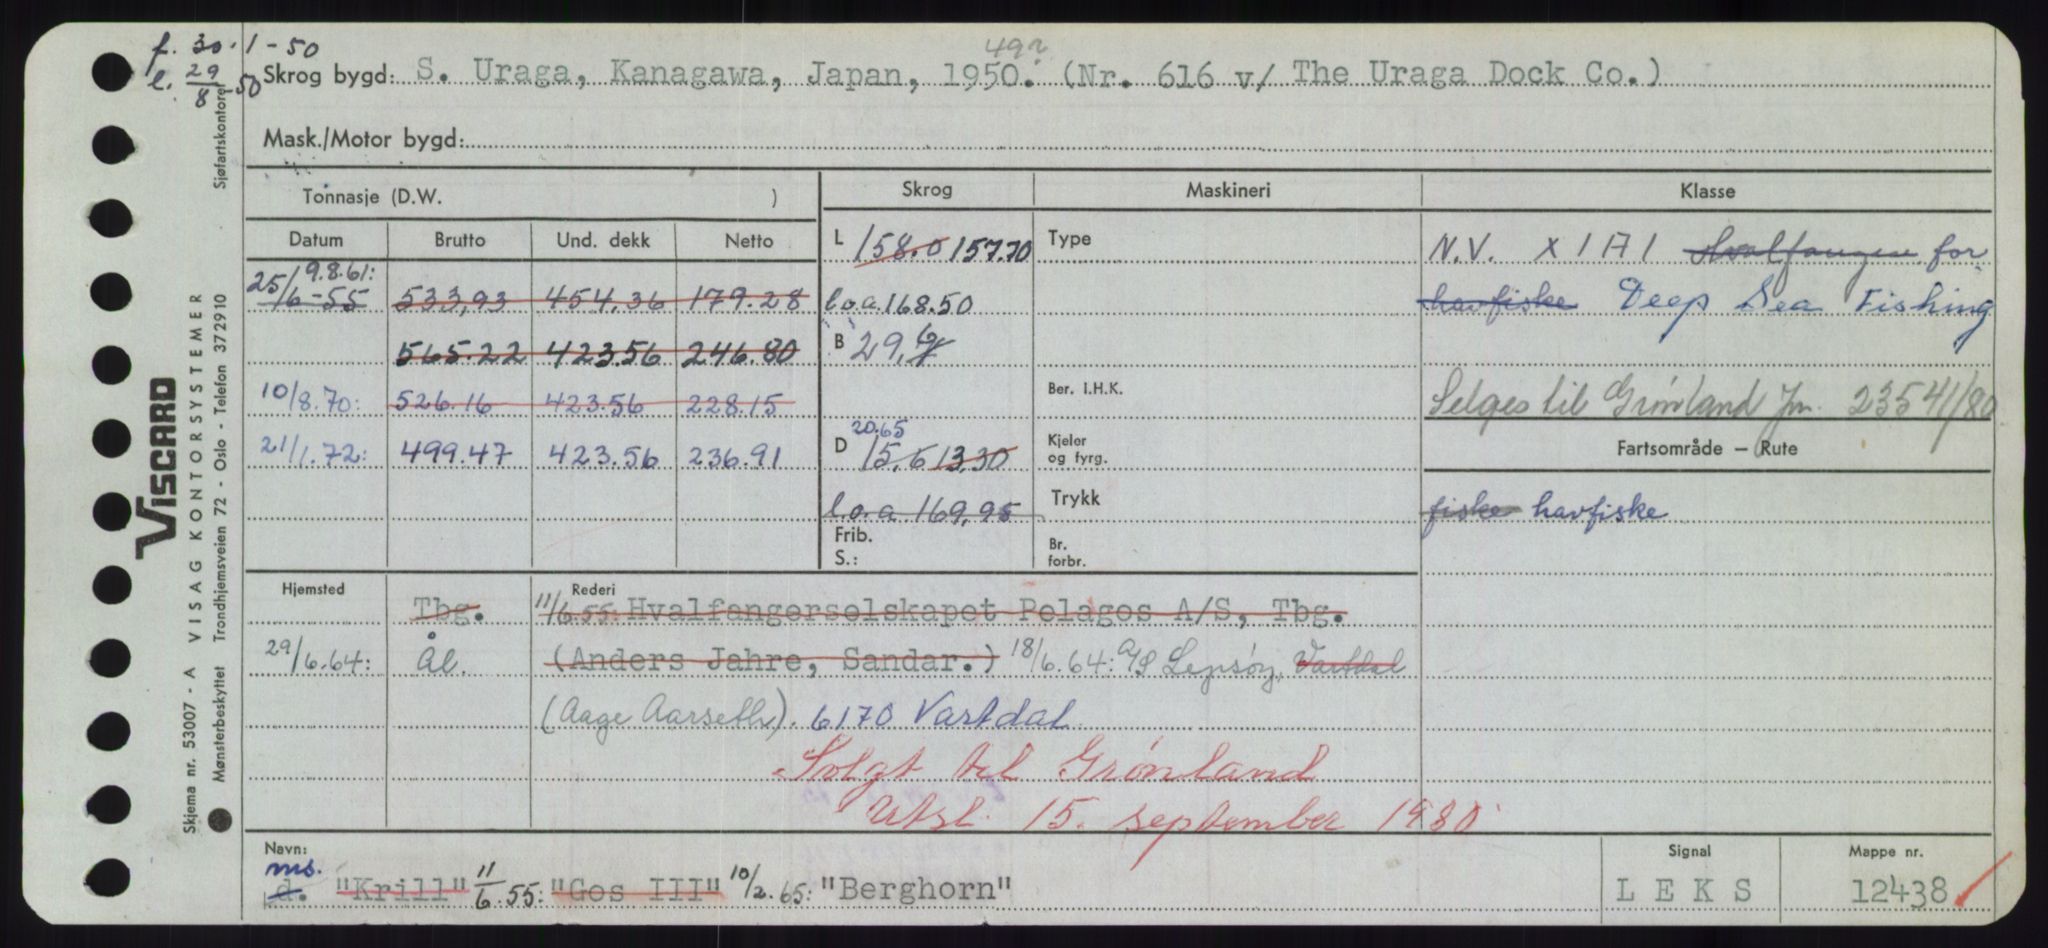 f. 30.1-50
l. 29/8-50
49?
Skrog bygd: S. Uraga, Kanagawa, Japan, 1950. (Nr. 616 v/ The Uraga Dock Co.)
Mask./Motor bygd:
Tonnasje (D.W. ) Skrog Maskineri Klasse
Datum Brutto Und. dekk Netto
L 158.0 157.70 Type
N.V. X 1 A 1 Hvalfanger for
25/6-55 9.8.61: 533,93 454.36 179.28
l.o.a. 168.50
havfiske Deep Sea Fishing
565.22 423.56 246.80
B 29,6
10/8.70: 526.16 423.56 228.15
Ber. I.H.K.
Selges til Grønland Jn. 23541/80
20.65
21/1.72: 499.47 423.56 236.91
D 15,6 13,30 Kjeler og fyrg.
Fartsområde – Rute
l.o.a 169,95 Trykk
fiske havfiske
Frib.
S.:
Br. forbr.
Hjemsted Rederi
Tbg. 11/6.55: Hvalfangerselskapet Pelagos A/S, Tbg.
29/6.64: Ål. (Anders Jahre, Sandar.) 18/6.64: A/S Lepsøy, Vartdal
(Aage Aarseth). 6170 Vartdal
Solgt til Grønland
Utsl. 15. september 1980
Navn: Signal Mappe nr.
ms.
d. "Krill" 11/6.55: "Gos III" 10/2.65: "Berghorn" LEKS 12438
VISCARD
Skjema nr. 53007 - A VISAG KONTORSYSTEMER Sjøfartskontoret
Mønsterbeskyttet Trondhjemsveien 72 - Oslo - Telefon 372910